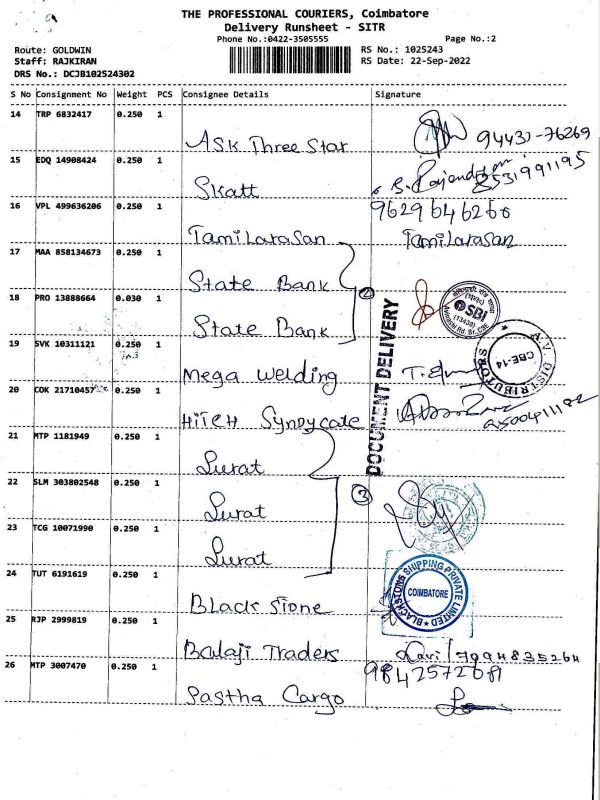 THE PROFESSIONAL COURIERS, Coimbatore
Delivery Runsheet - SITR
Phone No.:0422-3505555 Page No.:2
Route: GOLDWIN RS No.: 1025243
Staff: RAJKIRAN RS Date: 22-Sep-2022
DRS No.: DCJB102524302
S No Consignment No Weight PCS Consignee Details Signature
14 TRP 6832417 0.250 1
ASK Three Star 94431-76269
15 EDQ 14908424 0.250 1
Skatt B. Rajendran 8531991195
16 VPL 499636206 0.250 1 9629646266
Tamilarasan Tamilarasan
17 MAA 858134673 0.250 1
State Bank
18 PRO 13888664 0.030 1
State Bank
2
SBI
(13438)
DOCUMENT DELIVERY
19 SVK 10311121 0.250 1
Mega Welding
A.V. DISTRIBUTORS
CBE-14
20 COK 21710457 0.250 1
HiTECH Syndycate
21 MTP 1181949 0.250 1
Surat
22 SLM 303802548 0.250 1
Surat
3
23 TCG 10071990 0.250 1
Surat
24 TUT 6191619 0.250 1
Black Stone
BLACKSTONE SHIPPING PRIVATE LIMITED
COIMBATORE
25 RJP 2999819 0.250 1
Balaji Traders Ravi / 7994835264
26 MTP 3007470 0.250 1 9842572681
Pastha Cargo